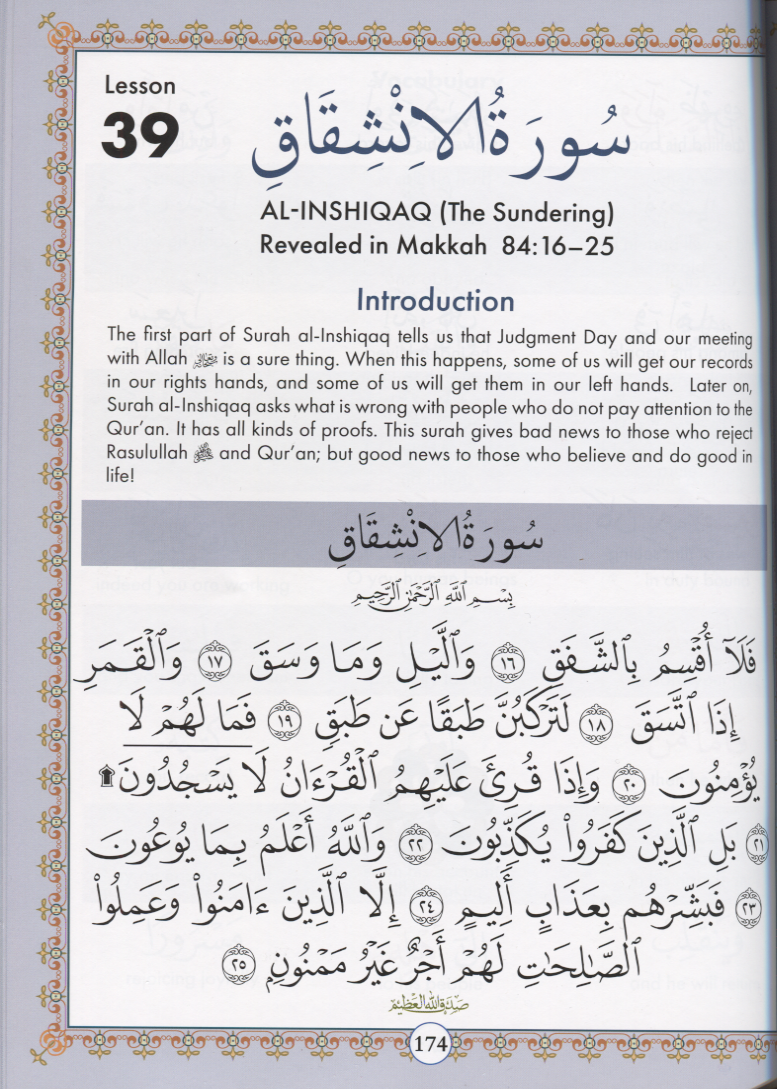 Lesson
39
سُورَةُ الِانْشِقَاقِ
AL-INSHIQAQ (The Sundering)
Revealed in Makkah 84:16–25
Introduction
The first part of Surah al-Inshiqaq tells us that Judgment Day and our meeting
with Allah is a sure thing. When this happens, some of us will get our records
in our rights hands, and some of us will get them in our left hands. Later on,
Surah al-Inshiqaq asks what is wrong with people who do not pay attention to the
Qur'an. It has all kinds of proofs. This surah gives bad news to those who reject
Rasulullah ﷺ and Qur'an; but good news to those who believe and do good in
life!
سُورَةُ الِانْشِقَاقِ
بِسْمِ اللَّهِ الرَّحْمَٰنِ الرَّحِيمِ
فَلَآ أُقْسِمُ بِٱلشَّفَقِ ١٦ وَٱلَّيْلِ وَمَا وَسَقَ ١٧ وَٱلْقَمَرِ
إِذَا ٱتَّسَقَ ١٨ لَتَرْكَبُنَّ طَبَقًا عَن طَبَقٍ ١٩ فَمَا لَهُمْ لَا
يُؤْمِنُونَ ٢٠ وَإِذَا قُرِئَ عَلَيْهِمُ ٱلْقُرْءَانُ لَا يَسْجُدُونَ ۩
٢١ بَلِ ٱلَّذِينَ كَفَرُوا۟ يُكَذِّبُونَ ٢٢ وَٱللَّهُ أَعْلَمُ بِمَا يُوعُونَ
٢٣ فَبَشِّرْهُم بِعَذَابٍ أَلِيمٍ ٢٤ إِلَّا ٱلَّذِينَ ءَامَنُوا۟ وَعَمِلُوا۟
ٱلصَّٰلِحَٰتِ لَهُمْ أَجْرٌ غَيْرُ مَمْنُونٍ ٢٥
صدق الله العظيم
174